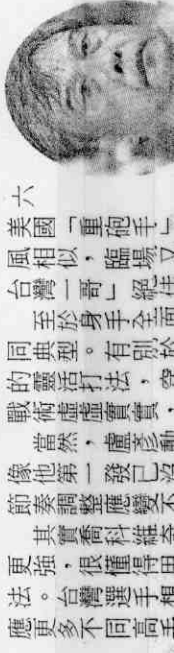 六
美國「重砲手」
風相似，臨場又
台灣一哥」絕佳
至於身手全面
同典型。有別於
的靈活打法，
戰術虛虛實實，
當然，盧彥勳
像他第一發已
節奏調整應變不
其實喬科維奇
更強，很懂得
法。台灣選手相
應更多不同高手